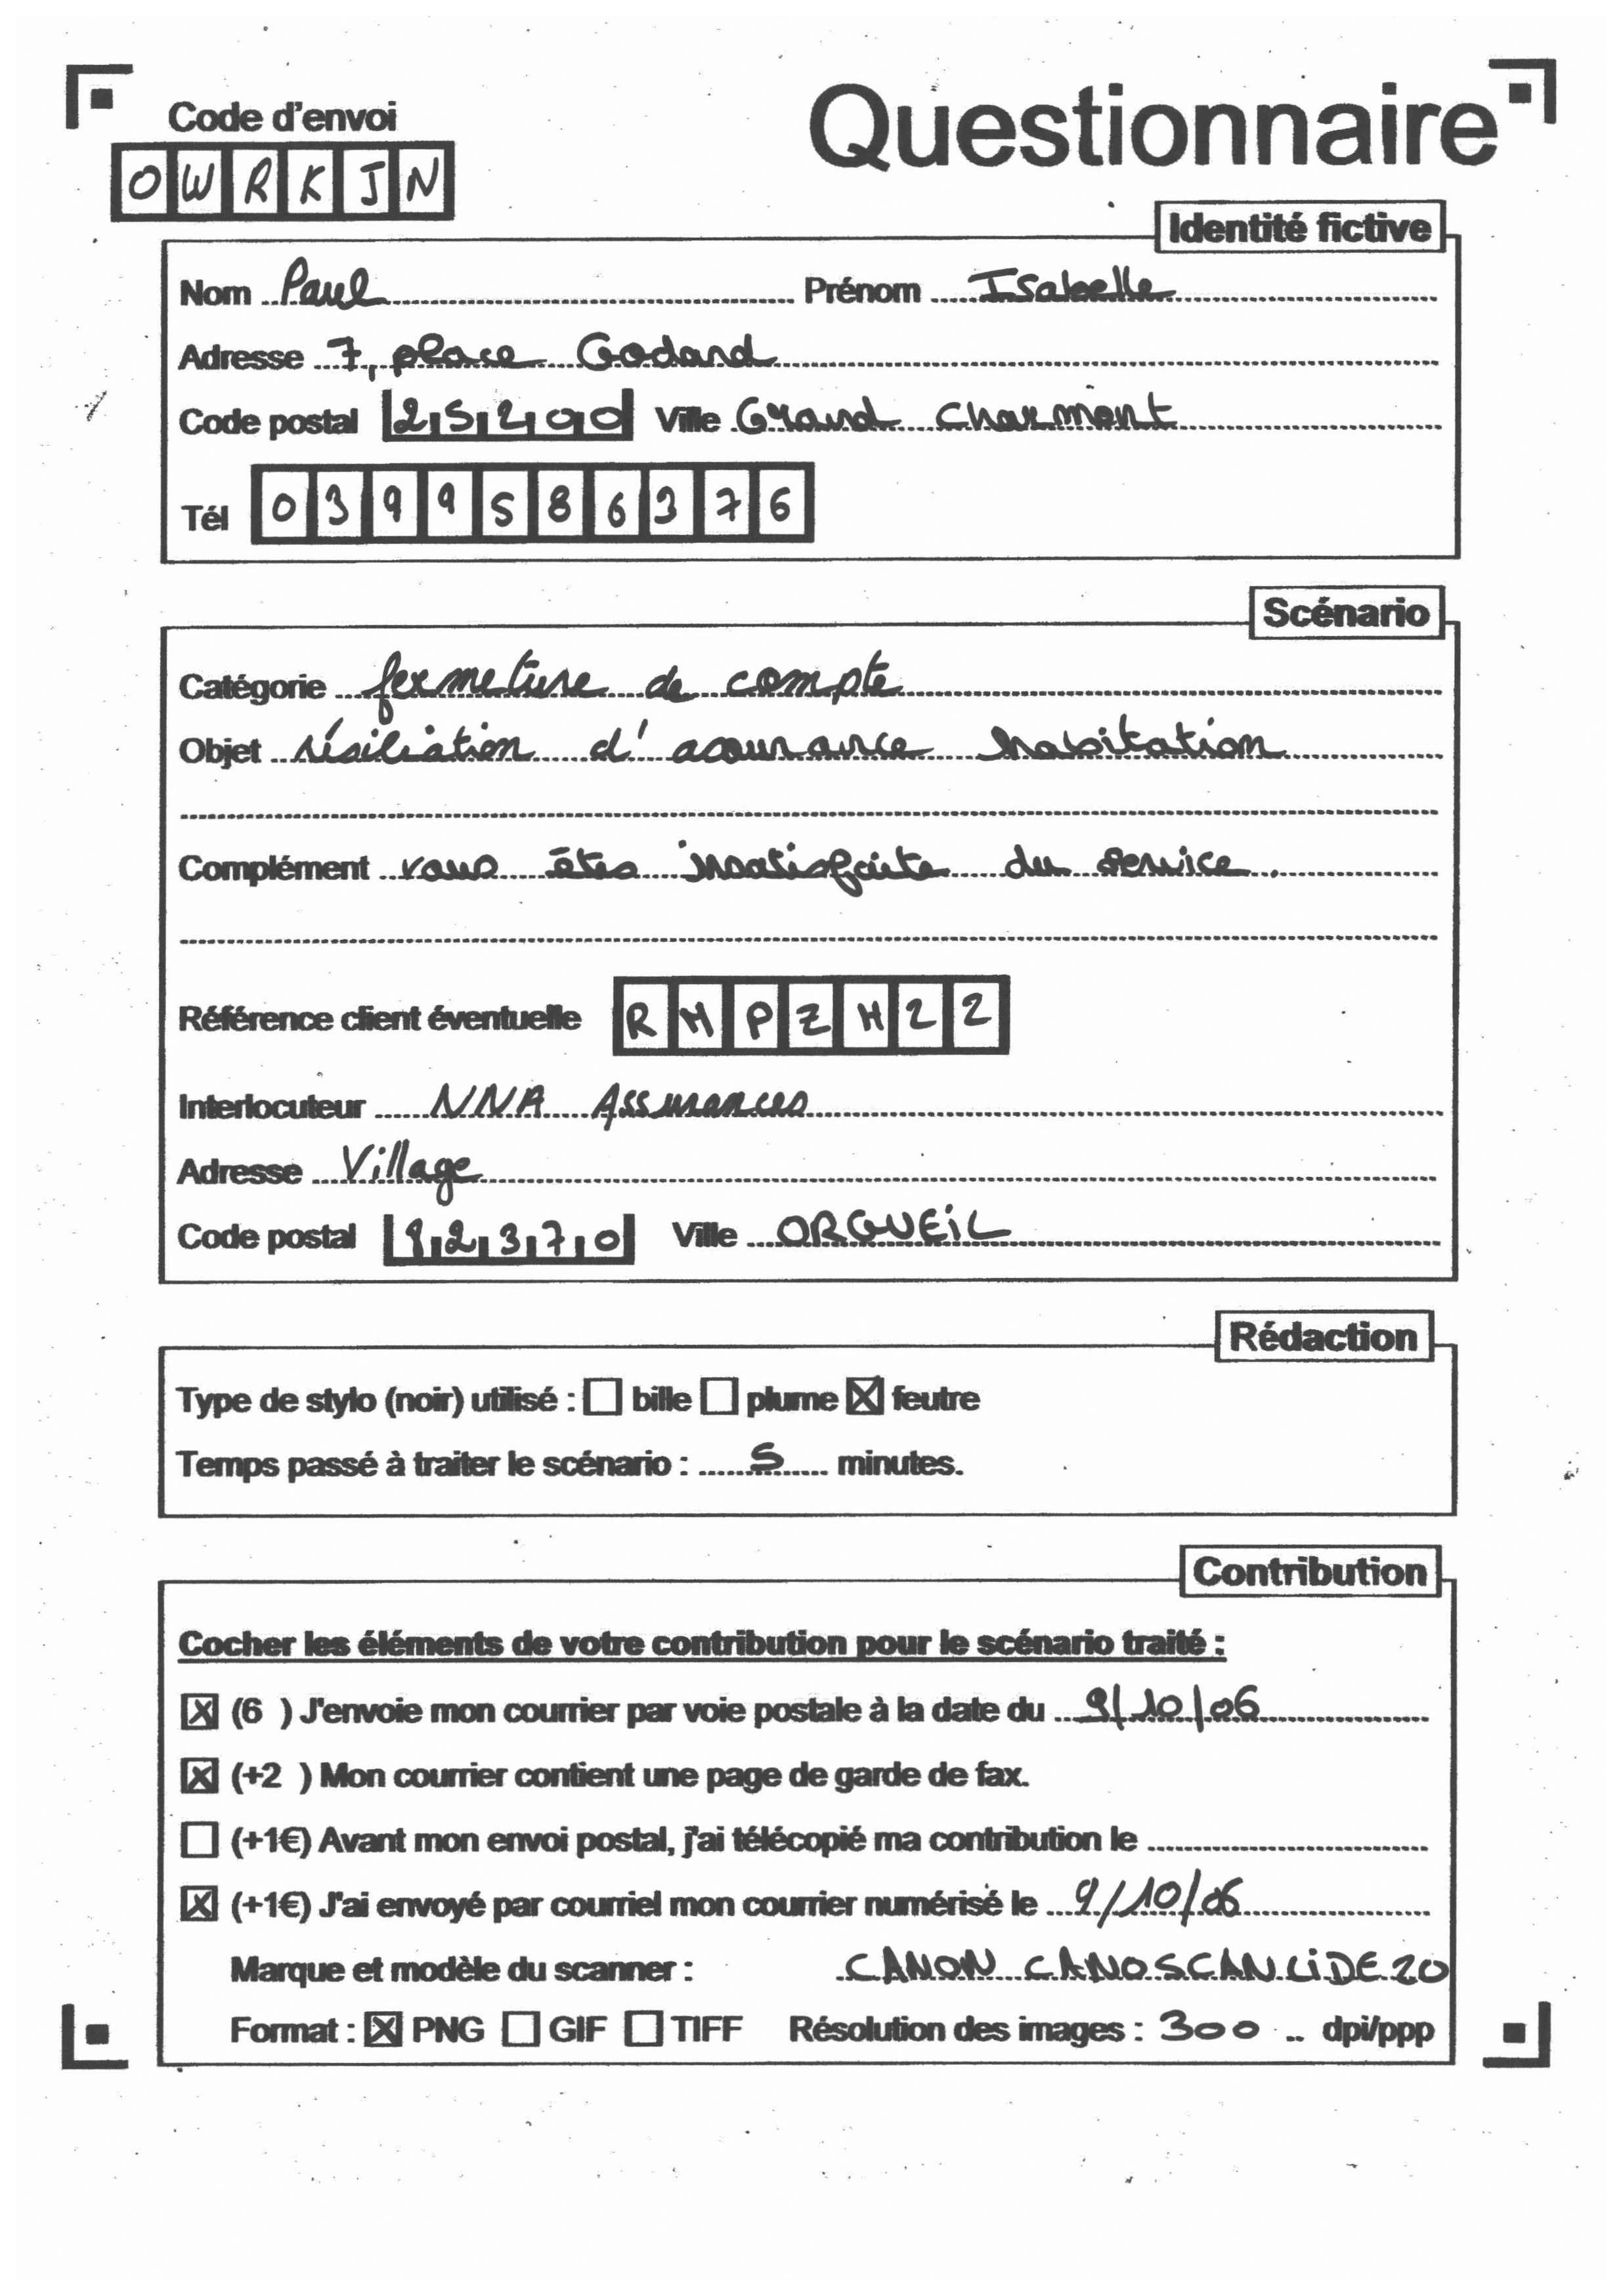 Code d'envoi
Questionnaire
OWRKJN
Identité fictive
Nom Paul Prénom Isabelle
Adresse 7, place Godard
Code postal 25200 Ville Grand Charmont
Tél 0399586376
Scénario
Catégorie fermeture de compte
Objet résiliation d'assurance habitation
Complément vous êtes insatisfaite du service.
Référence client éventuelle RMPZH22
Interlocuteur NNA Assurances
Adresse Village
Code postal 82370 Ville ORGUEIL
Rédaction
Type de stylo (noir) utilisé : ☐ bille ☐ plume ☒ feutre
Temps passé à traiter le scénario : 5 minutes.
Contribution
Cocher les éléments de votre contribution pour le scénario traité :
☒ (6 ) J'envoie mon courrier par voie postale à la date du 9/10/06
☒ (+2 ) Mon courrier contient une page de garde de fax.
☐ (+1€) Avant mon envoi postal, j'ai télécopié ma contribution le
☒ (+1€) J'ai envoyé par courriel mon courrier numérisé le 9/10/06
Marque et modèle du scanner : CANON CANOSCAN LiDE 20
Format : ☒ PNG ☐ GIF ☐ TIFF Résolution des images : 300 dpi/ppp